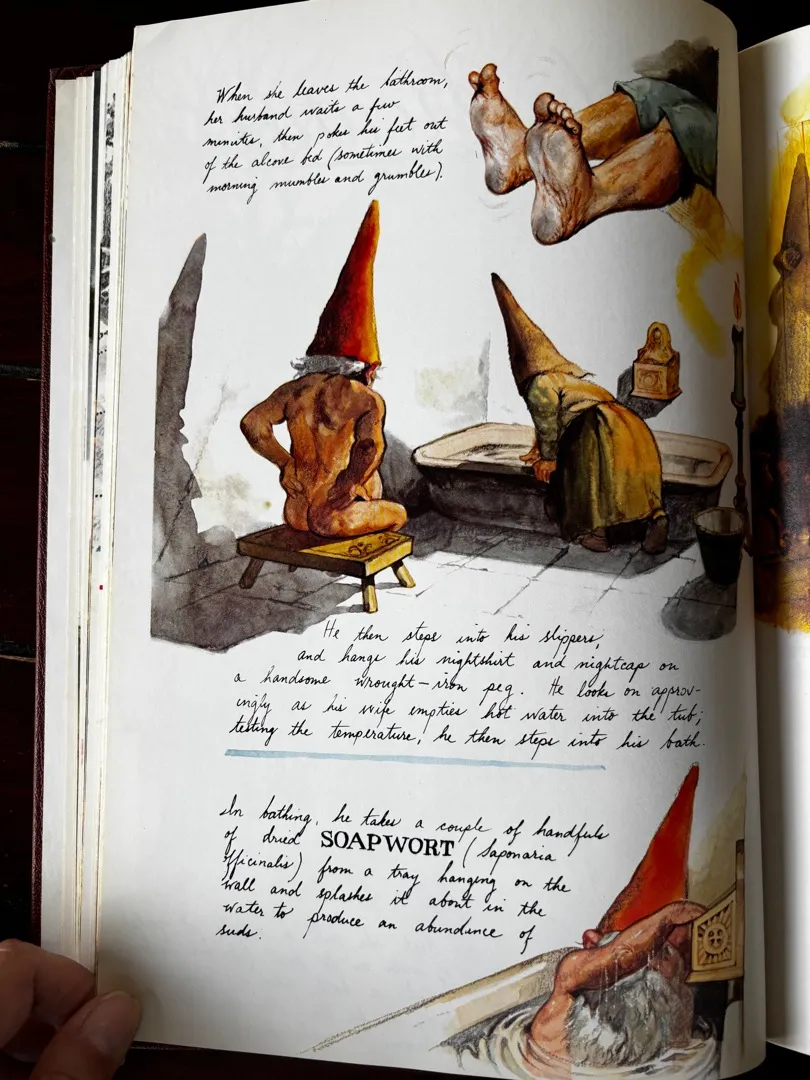 When she leaves the bathroom,
her husband waits a few
minutes, then pokes his feet out
of the alcove bed (sometimes with
morning mumbles and grumbles).
He then steps into his slippers,
and hangs his nightshirt and nightcap on
a handsome wrought-iron peg. He looks on approv-
ingly as his wife empties hot water into the tub;
testing the temperature, he then steps into his bath.
In bathing, he takes a couple of handfuls
of dried SOAPWORT (Saponaria
officinalis) from a tray hanging on the
wall and splashes it about in the
water to produce an abundance of
suds.